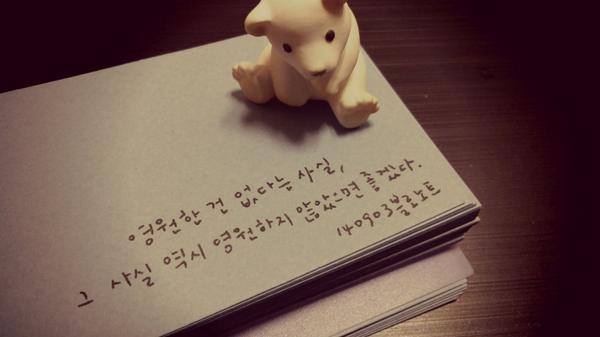 영원한 건 없다는 사실,
그 사실 역시 영원하지 않았으면 좋겠다.
140903블로노트